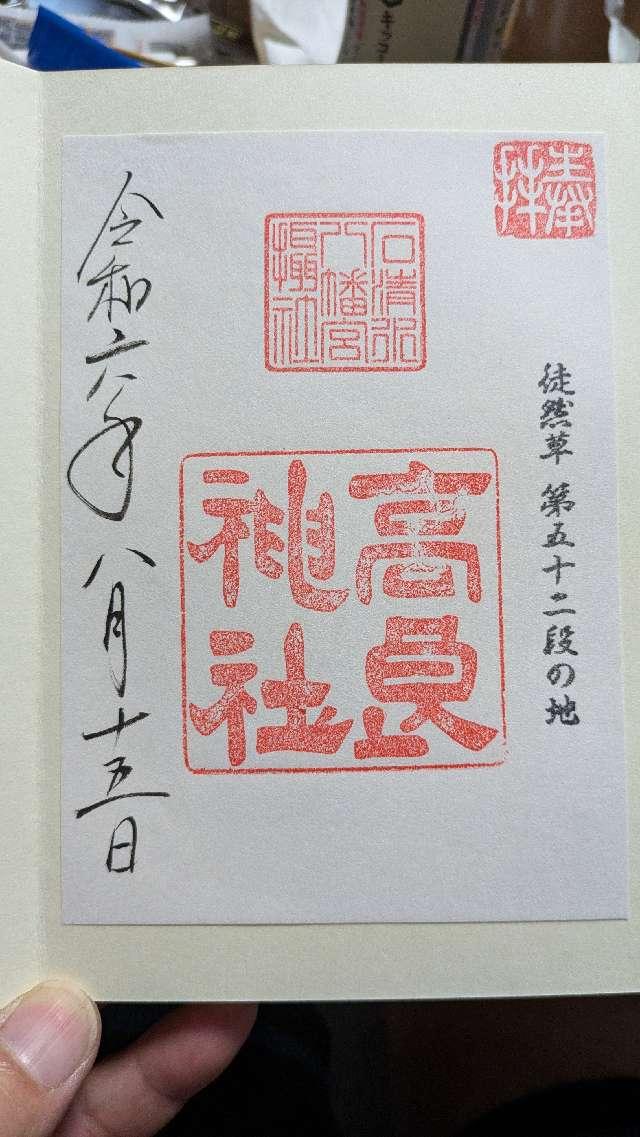 奉拝
徒然草 第五十二段の地
石清水
八幡宮
摂社
高良
神社
令和六年八月十五日
キッコー